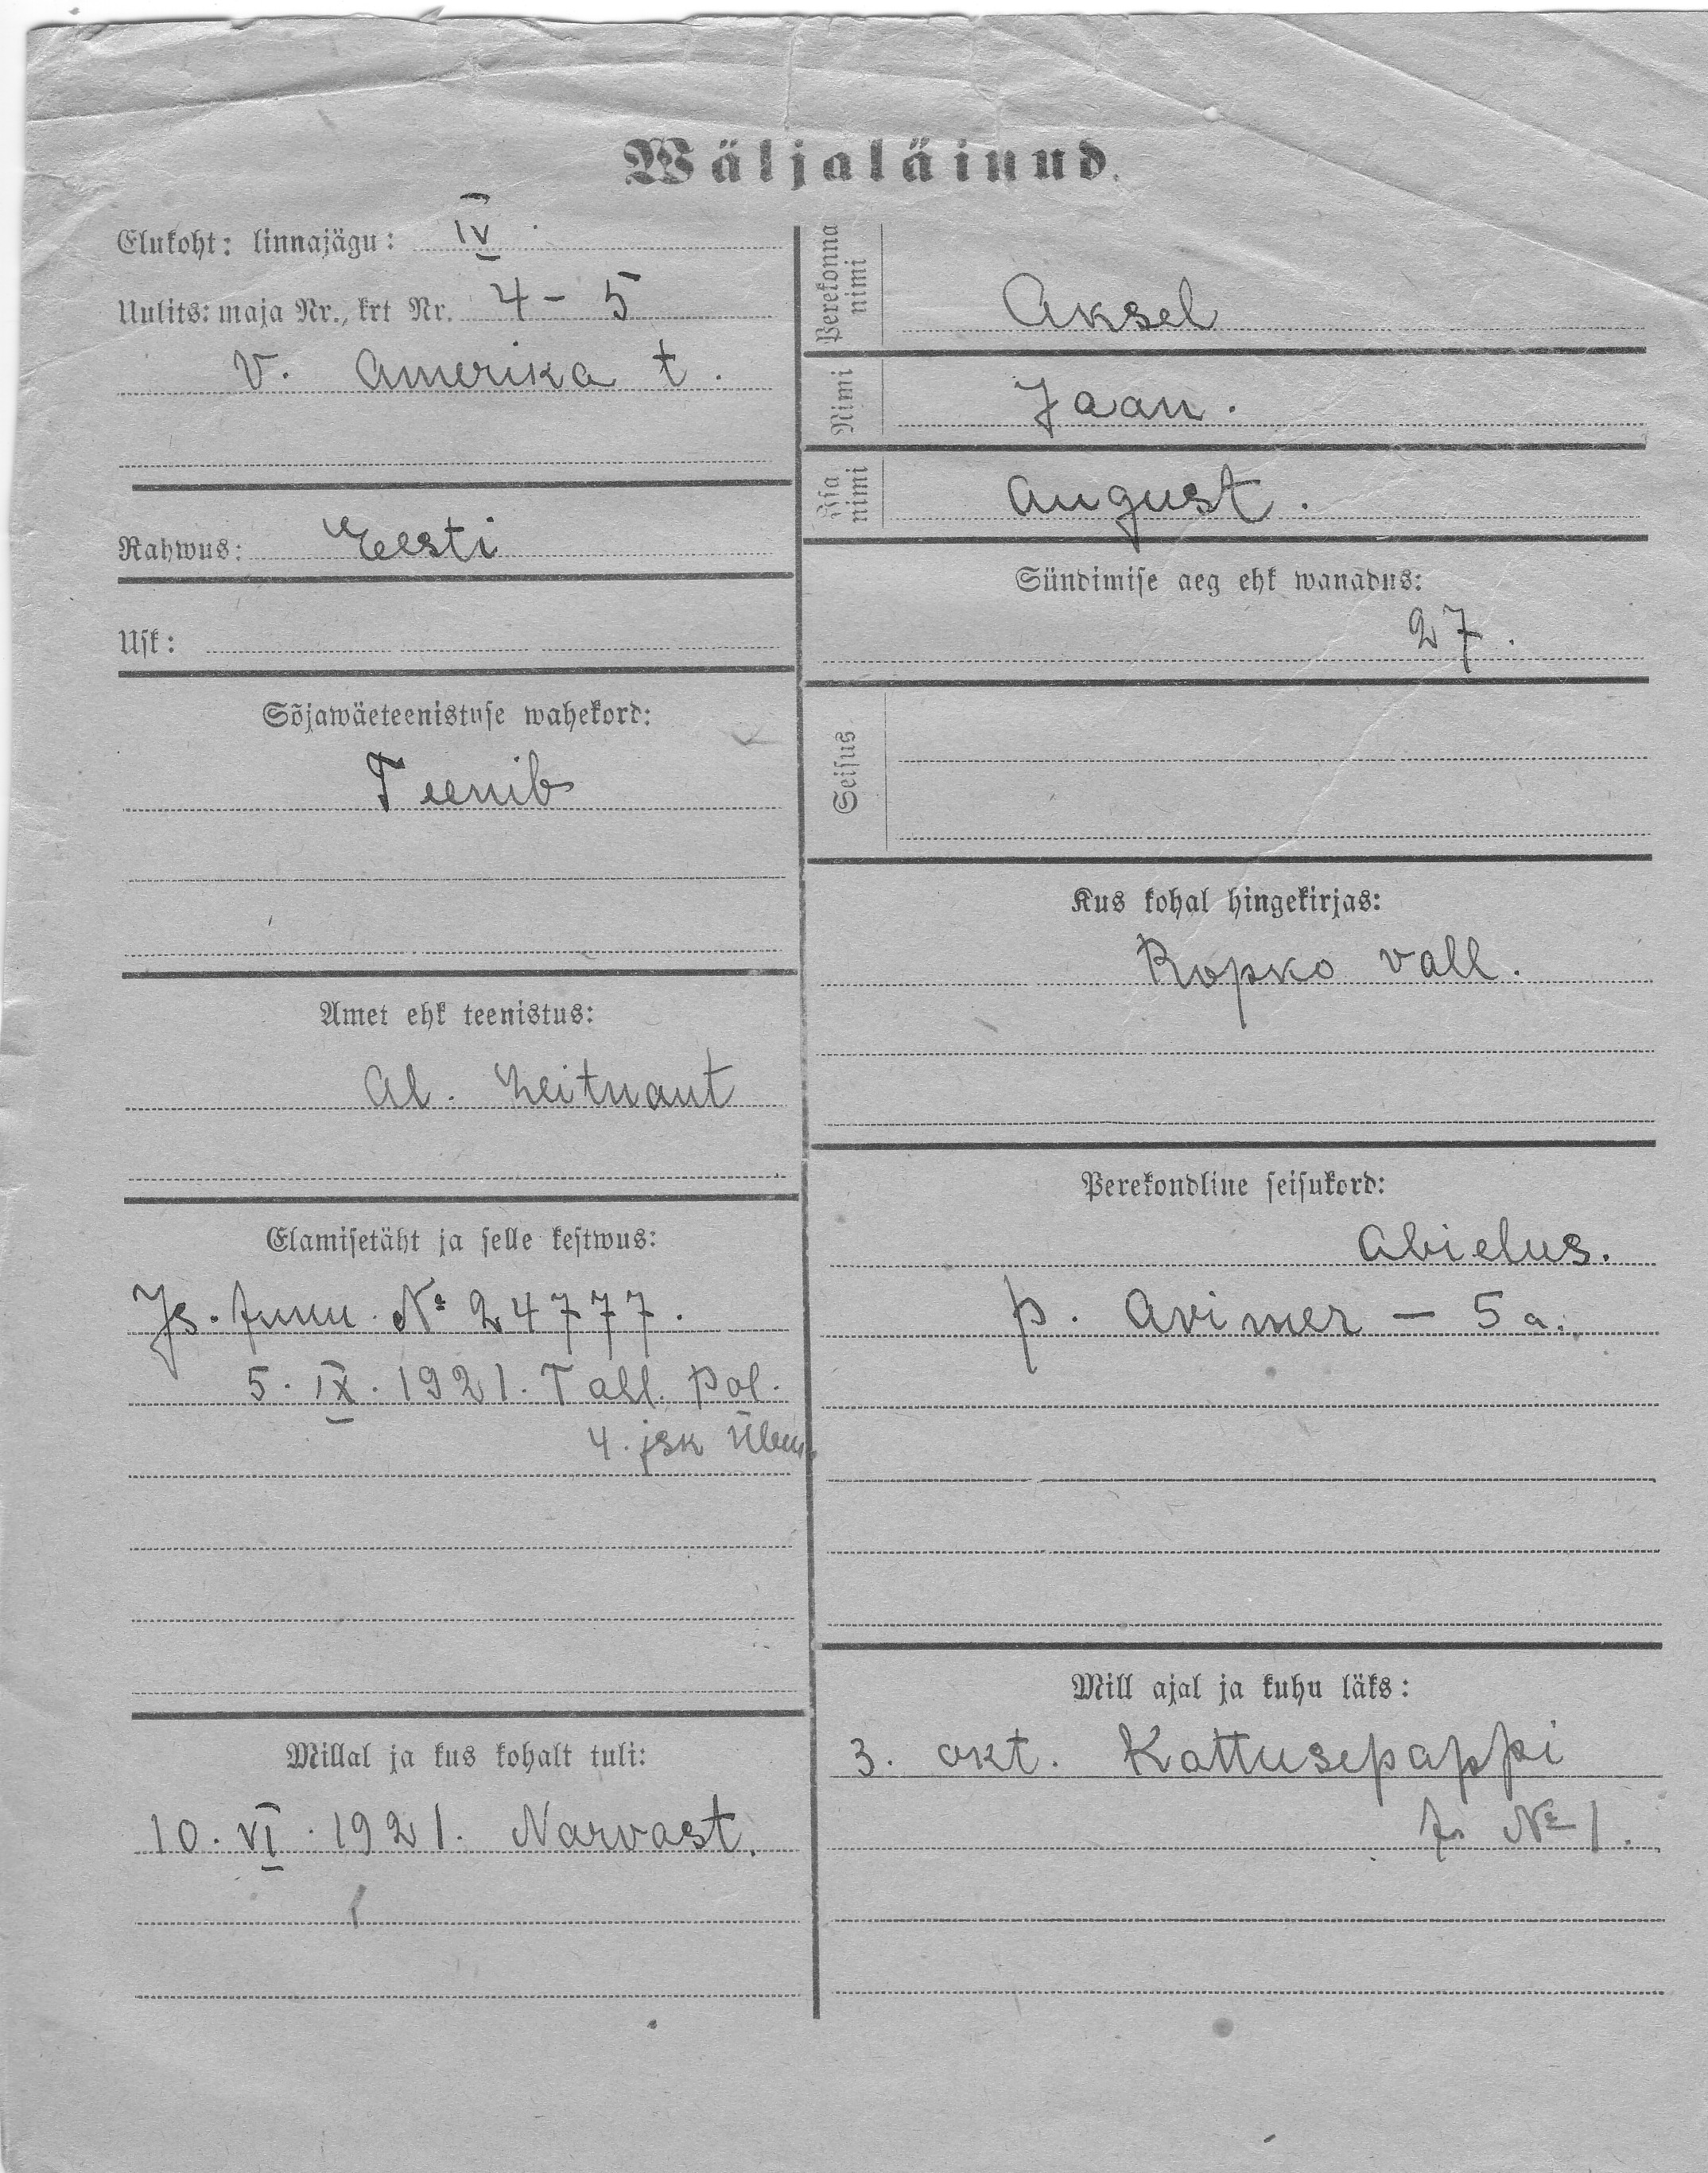 Wäljaläinud.
Elukoht: linnajägu: IV.
Uulits: maja Nr., krt Nr. 4 - 5
V. Amerika t.
Rahwus: Eesti
Usk:
Sõjawäeteenistuse wahekord:
Teenib
Amet ehk teenistus:
Al. Leitnant
Elamisetäht ja selle kestwus:
Js. tunn. № 24777.
5. IX. 1921. Tall. Pol.
4. jsk
Millal ja kus kohalt tuli:
10. VI. 1921. Narvast.
Perekonna nimi
Aksel
Nimi
Jaan.
Isa nimi
August.
Sündimise aeg ehk wanadus:
27.
Seisus
Kus kohal hingekirjas:
Ropko vall.
Perekondline seisukord:
Abielus.
p. Avimer - 5 a.
Mill ajal ja kuhu läks:
3. okt. Kattusepappi
№ 1.